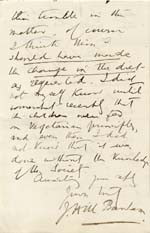 the trouble in the
matter, of course
I think Miss
should have made
the change in the diet
as
not myself know until
somewhat recently that
the children were fed
on Vegetarian principles,
and even then I did
not know that it was
done without the knowledge
of the Society.
Yours truly